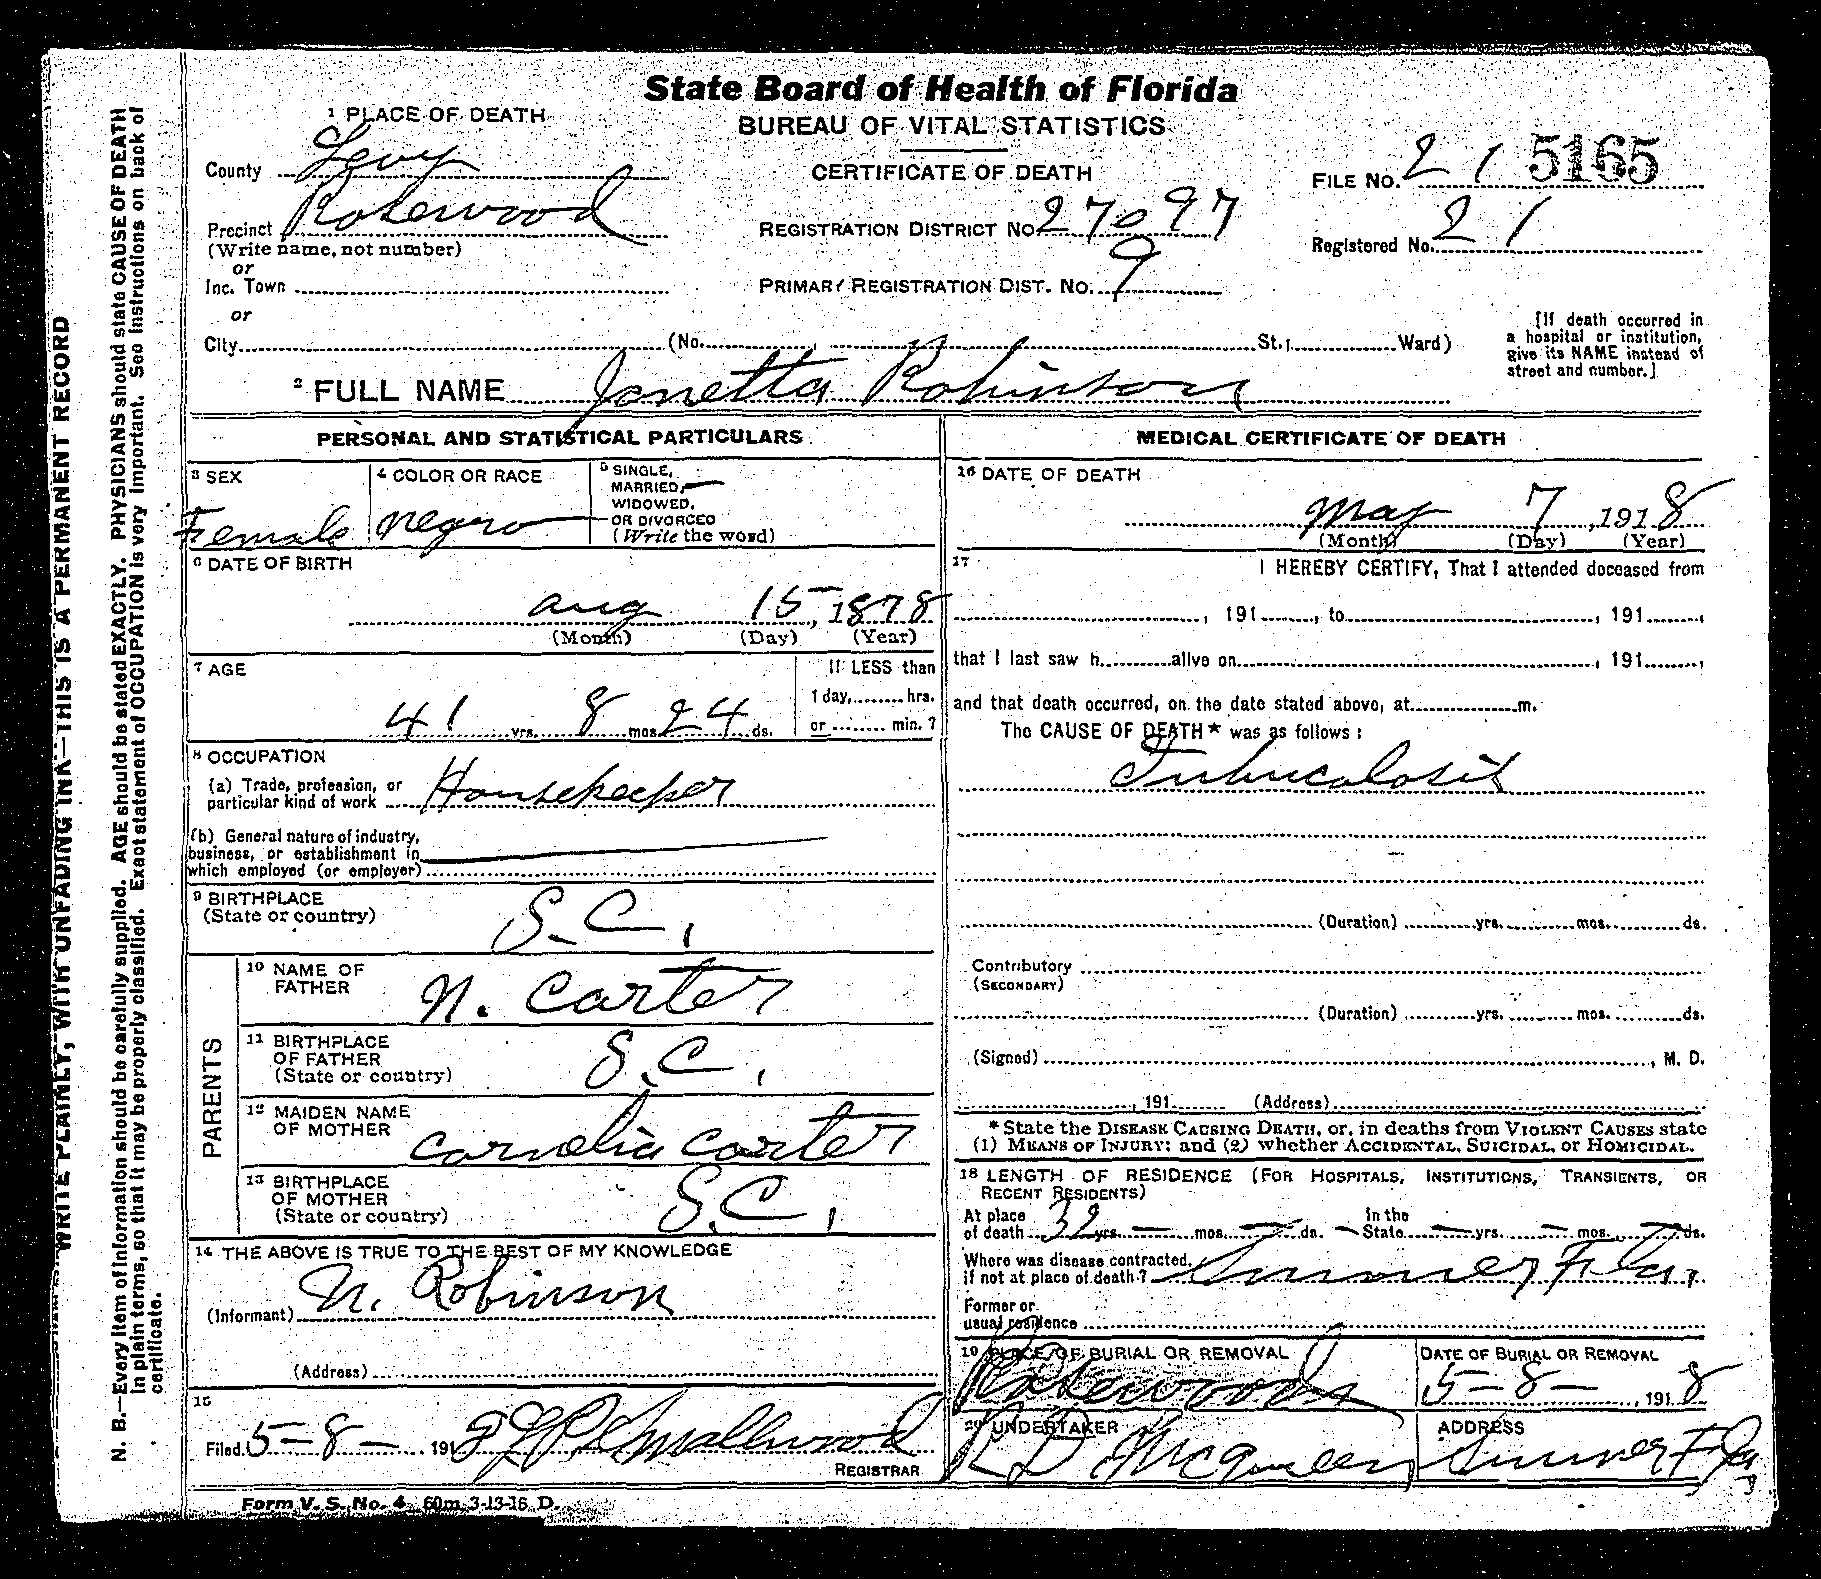 State Board of Health of Florida
BUREAU OF VITAL STATISTICS
CERTIFICATE OF DEATH
1 PLACE OF DEATH
County Levy
Precinct Rosewood
(Write name, not number)
or
Inc. Town
or
City (No. , St., Ward)
REGISTRATION DISTRICT No. 27097
PRIMARY REGISTRATION DIST. No. 9
FILE No. 21 5165
Registered No. 21
[If death occurred in
a hospital or institution,
give its NAME instead of
street and number.]
2 FULL NAME Janetta Robinson
PERSONAL AND STATISTICAL PARTICULARS
3 SEX
Female
4 COLOR OR RACE
negro
5 SINGLE,
MARRIED,
WIDOWED,
OR DIVORCED
(Write the word)
6 DATE OF BIRTH
aug 15, 1878
(Month) (Day) (Year)
7 AGE
41 yrs. 8 mos. 24 ds.
If LESS than
1 day, hrs.
or min.?
8 OCCUPATION
(a) Trade, profession, or
particular kind of work Housekeeper
(b) General nature of industry,
business, or establishment in
which employed (or employer)
9 BIRTHPLACE
(State or country) S.C.
PARENTS
10 NAME OF
FATHER N. Carter
11 BIRTHPLACE
OF FATHER
(State or country) S.C.
12 MAIDEN NAME
OF MOTHER Cornelia Carter
13 BIRTHPLACE
OF MOTHER
(State or country) S.C.
14 THE ABOVE IS TRUE TO THE BEST OF MY KNOWLEDGE
(Informant) N. Robinson
(Address)
15
Filed 5-8- 191 Smallwood
REGISTRAR
Form V. S. No. 4 60m 3-13-16 D.
MEDICAL CERTIFICATE OF DEATH
16 DATE OF DEATH
May 7, 1918
(Month) (Day) (Year)
17 I HEREBY CERTIFY, That I attended deceased from
, 191 , to , 191 ,
that I last saw h alive on , 191 ,
and that death occurred, on the date stated above, at m.
The CAUSE OF DEATH* was as follows:
Tubucolosis
(Duration) yrs. mos. ds.
Contributory
(SECONDARY)
(Duration) yrs. mos. ds.
(Signed) , M. D.
, 191 (Address)
*State the DISEASE CAUSING DEATH, or, in deaths from VIOLENT CAUSES state
(1) MEANS OF INJURY; and (2) whether ACCIDENTAL, SUICIDAL, or HOMICIDAL.
18 LENGTH OF RESIDENCE (FOR HOSPITALS, INSTITUTIONS, TRANSIENTS, OR
RECENT RESIDENTS)
At place
of death 32 yrs. — mos. — ds. In the State — yrs. — mos. — ds.
Where was disease contracted,
if not at place of death? Sumner Fla,
Former or
usual residence
19 PLACE OF BURIAL OR REMOVAL
Rosewood
DATE OF BURIAL OR REMOVAL
5-8-, 1918
20 UNDERTAKER
R D McQueen
ADDRESS
Sumner Fla
WRITE PLAINLY, WITH UNFADING INK—THIS IS A PERMANENT RECORD
N. B.—Every item of information should be carefully supplied. AGE should be stated EXACTLY. PHYSICIANS should state CAUSE OF DEATH
in plain terms, so that it may be properly classified. Exact statement of OCCUPATION is very important. See instructions on back of
certificate.